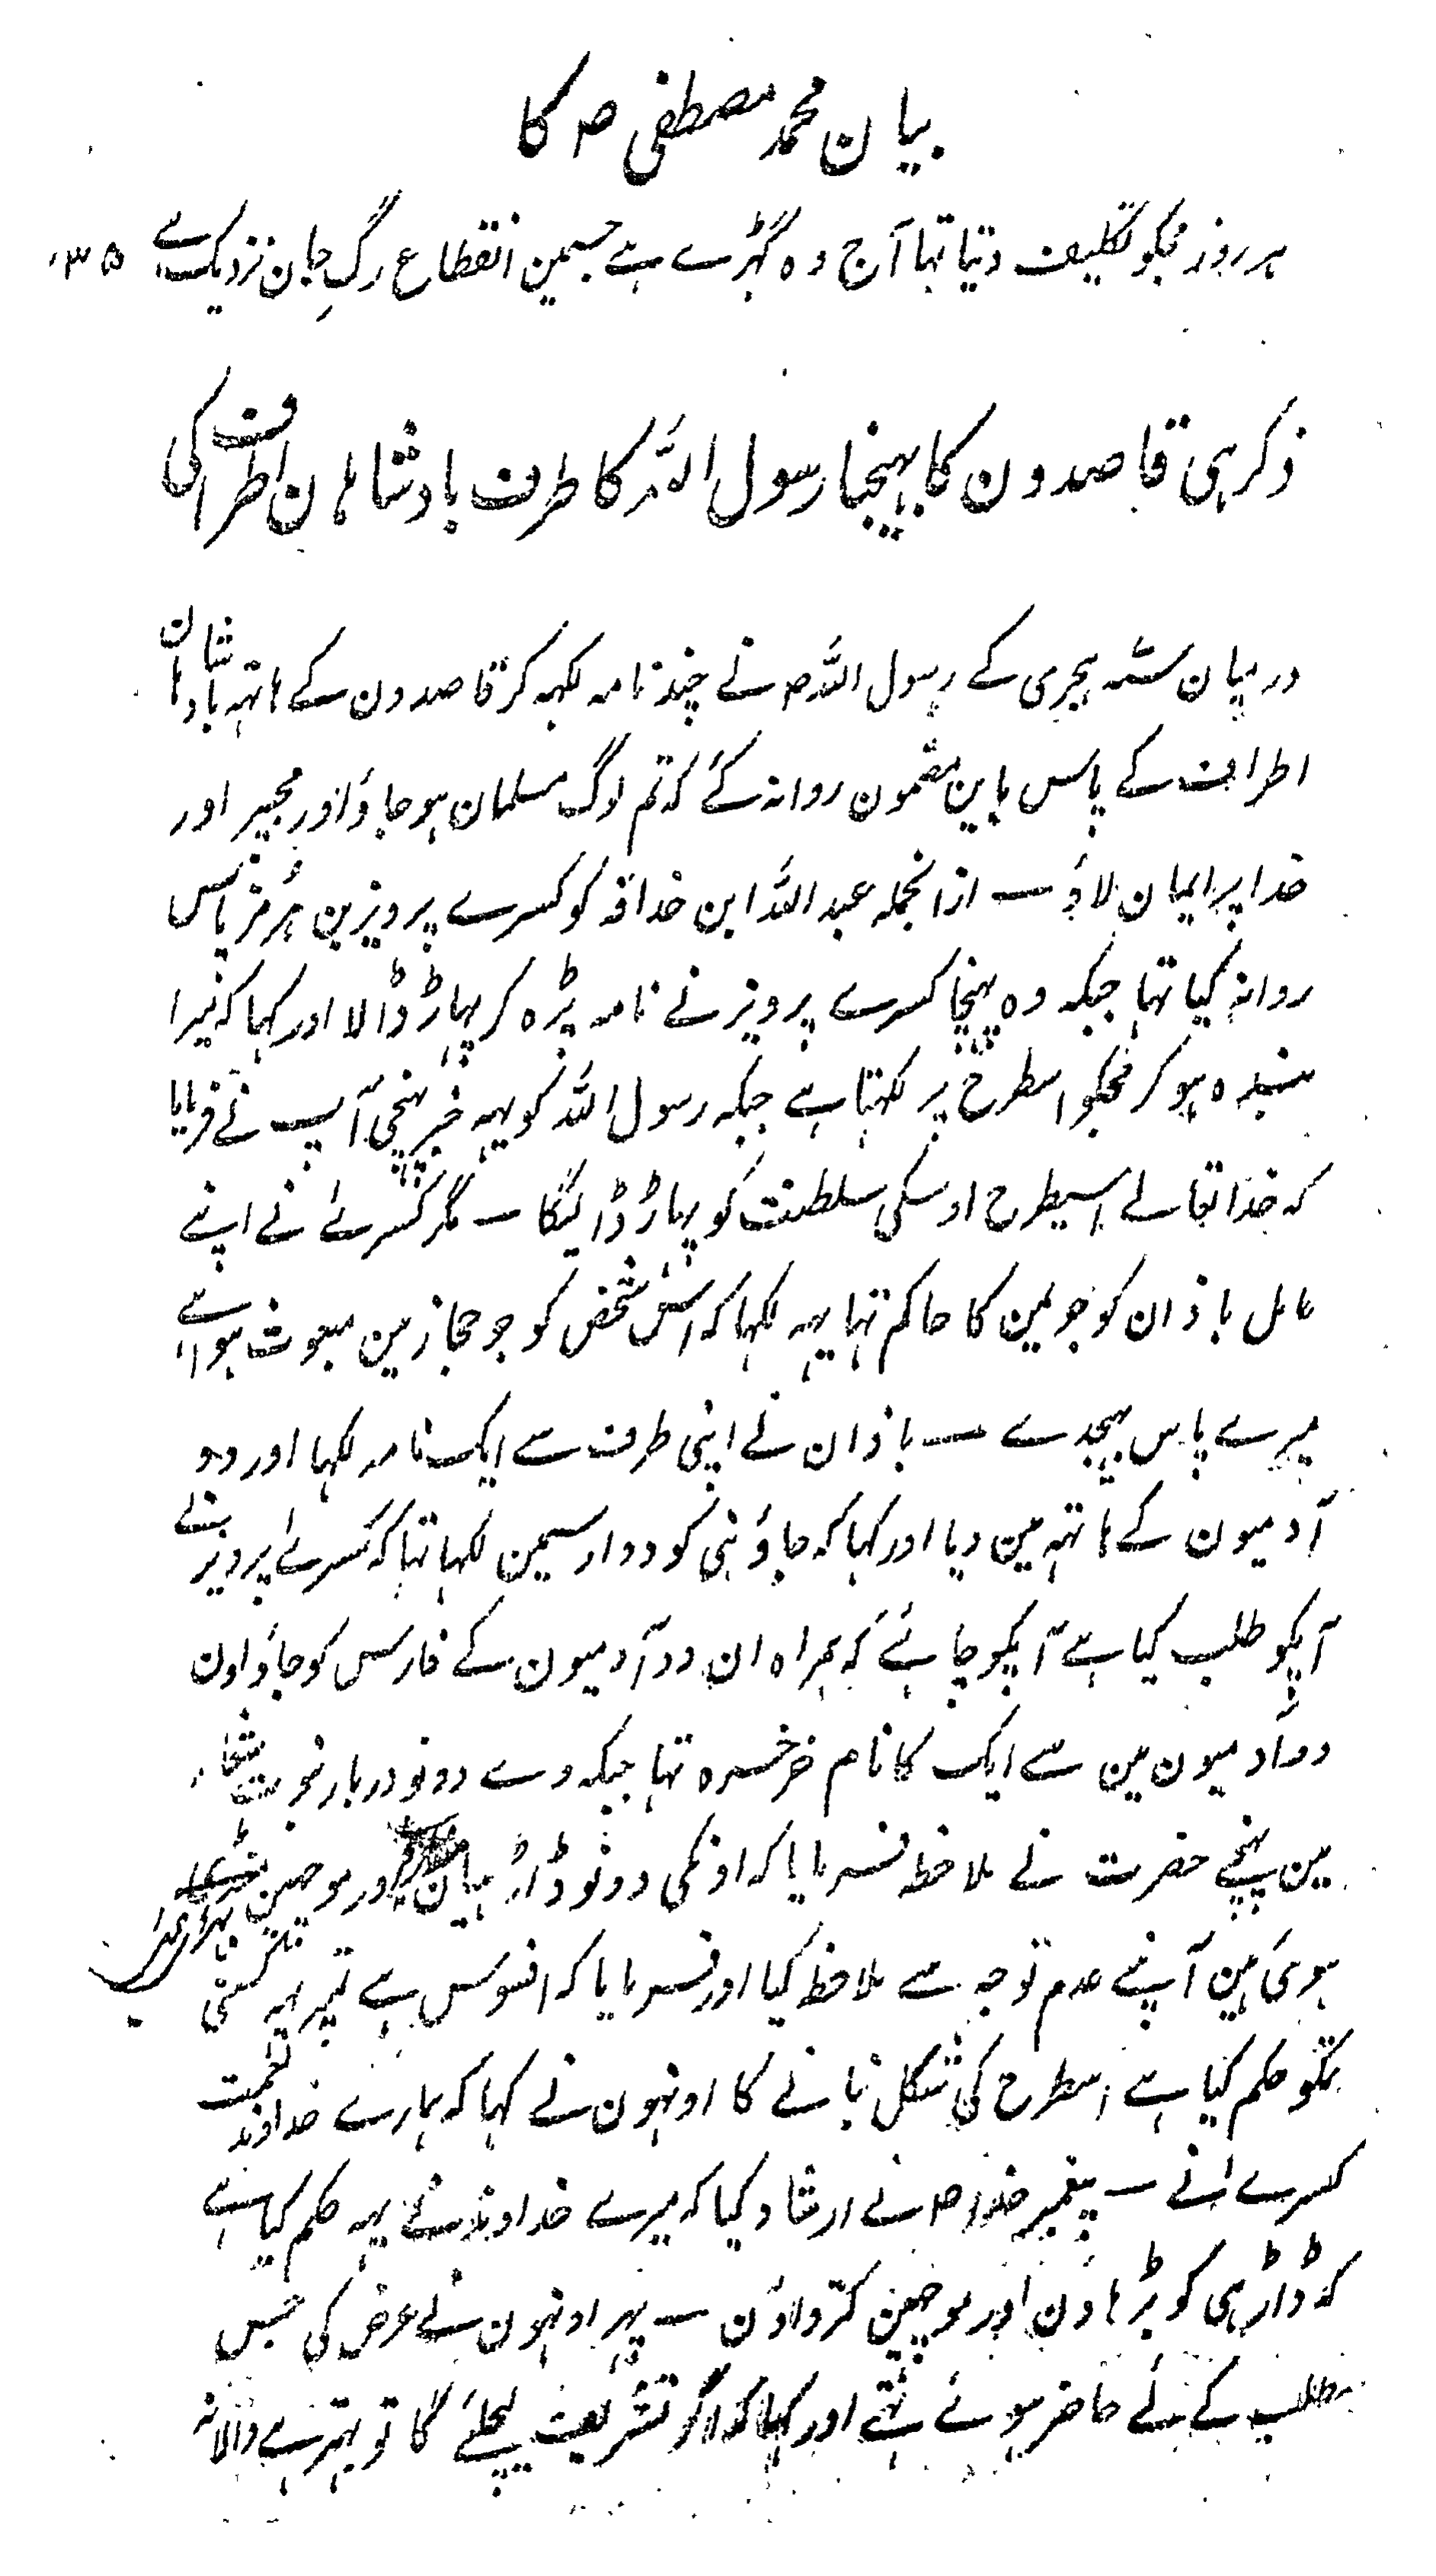 بیان محمد مصطفی ص کا
ہر روز مجکو تکلیف دتیا تہا آج وہ گہڑے ہے جسمین انقطاع رگِ جان نزدیک ہے ۱۳۵
ذکر ہی قاصدون کا بہیجنا رسول اللہ کا طرف بادشاہان اطراف کی
درمیان سنہ ہجری کے رسول اللہ ص نے چند نامہ لکہہ کر قاصدون کے ہاتہہ بادشاہان
اطراف کے پاس باین مضمون روانہ کئے کہ تم لوگ مسلمان ہو جاؤ اور مجہپر اور
خدا پر ایمان لاؤ ـ ازانجملہ عبد اللہ ابن حذافہ کو کسرے پرویز بن ہُرمز پاس
روانہ کیا تہا جبکہ وہ پہنچا کسرے پرویز نے نامہ پڑہ کر پہاڑ ڈالا اور کہا کہ میرا
بندہ ہو کر مجکو اسطرح پر لکہتا ہے جبکہ رسول اللہ کو یہہ خبر پہنچی آپ نے فرمایا
کہ خدا تعالے اسیطرح اوسکی سلطنت کو پہاڑ ڈالیگا ـ مگر کسرےٰ نے اپنے
عامل باذان کو جو یمن کا حاکم تہا یہہ لکہا کہ اس شخص کو جو حجاز مین مبعوث ہوا ہے
میرے پاس بہیجدے ـ باذان نے اپنی طرف سے ایک نامہ لکہا اور دو
آدمیون کے ہاتہہ مین دیا اور کہا کہ جاؤ نبی کو دو اوسمین لکہا تہا کہ کسرےٰ پرویز نے
آپکو طلب کیا ہے آپکو چاہئے کہ ہمراہ ان دو آدمیون کے فارس کو جاؤ اون
دو آدمیون مین سے ایک کا نام خرخسرہ تہا جبکہ وے دونو دربار نبوت شعار
مین پہنچے حضرت نے ملاحظہ فرمایا کہ اونکی دونو ڈاڑہیان اور موچہین
ہوئی ہین آپنے عدم توجہ سے ملاحظہ کیا اور فرمایا کہ افسوس ہے تمپر یہہ کسنی
تمکو حکم کیا ہے اسطرح کی شکل بنانے کا اونہون نے کہا کہ ہمارے خداوند نعمت
کسرے نے ـ پیغمبر خدا ص نے ارشاد کیا کہ میرے خداوند نے یہہ حکم کیا ہے
کہ ڈاڑہی کو بڑہاون اور موچہین کترواؤن ـ پہر اونہون نے عرض کی جس
مطلب کے لئے حاضر ہوئے تہے اور کہا کہ اگر تشریف لیچلئے گا تو بہتر ہے والا نہ